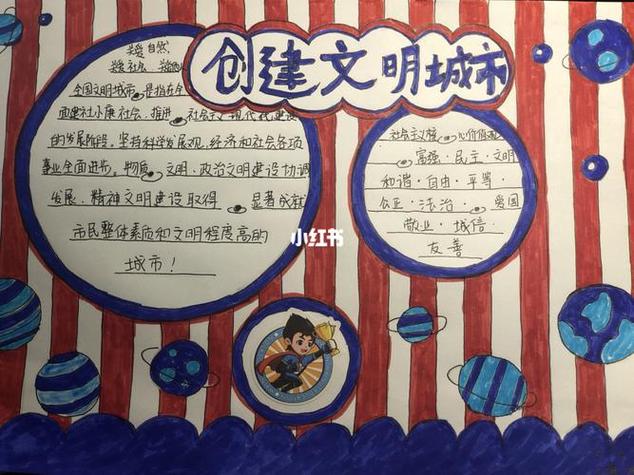 创建文明城市
关爱自然
关爱社会 关爱他人
全国文明城市 是指在全
面建社小康社会、推进 社会主义现代化建设
的发展阶段,坚持科学发展观,经济和社会各项
事业全面进步,物质 文明、政治文明建设协调
发展、精神文明建设取得 显著成就
市民整体素质和文明程度高的
城市!
社会主义核 心价值观
富强·民主·文明
和谐·自由·平等·
公正·法治· 爱国
敬业·诚信·
友善
小红书